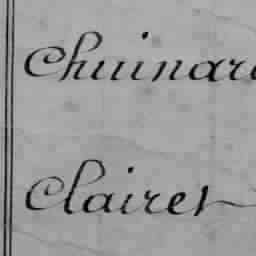 Chuinar
Clairet